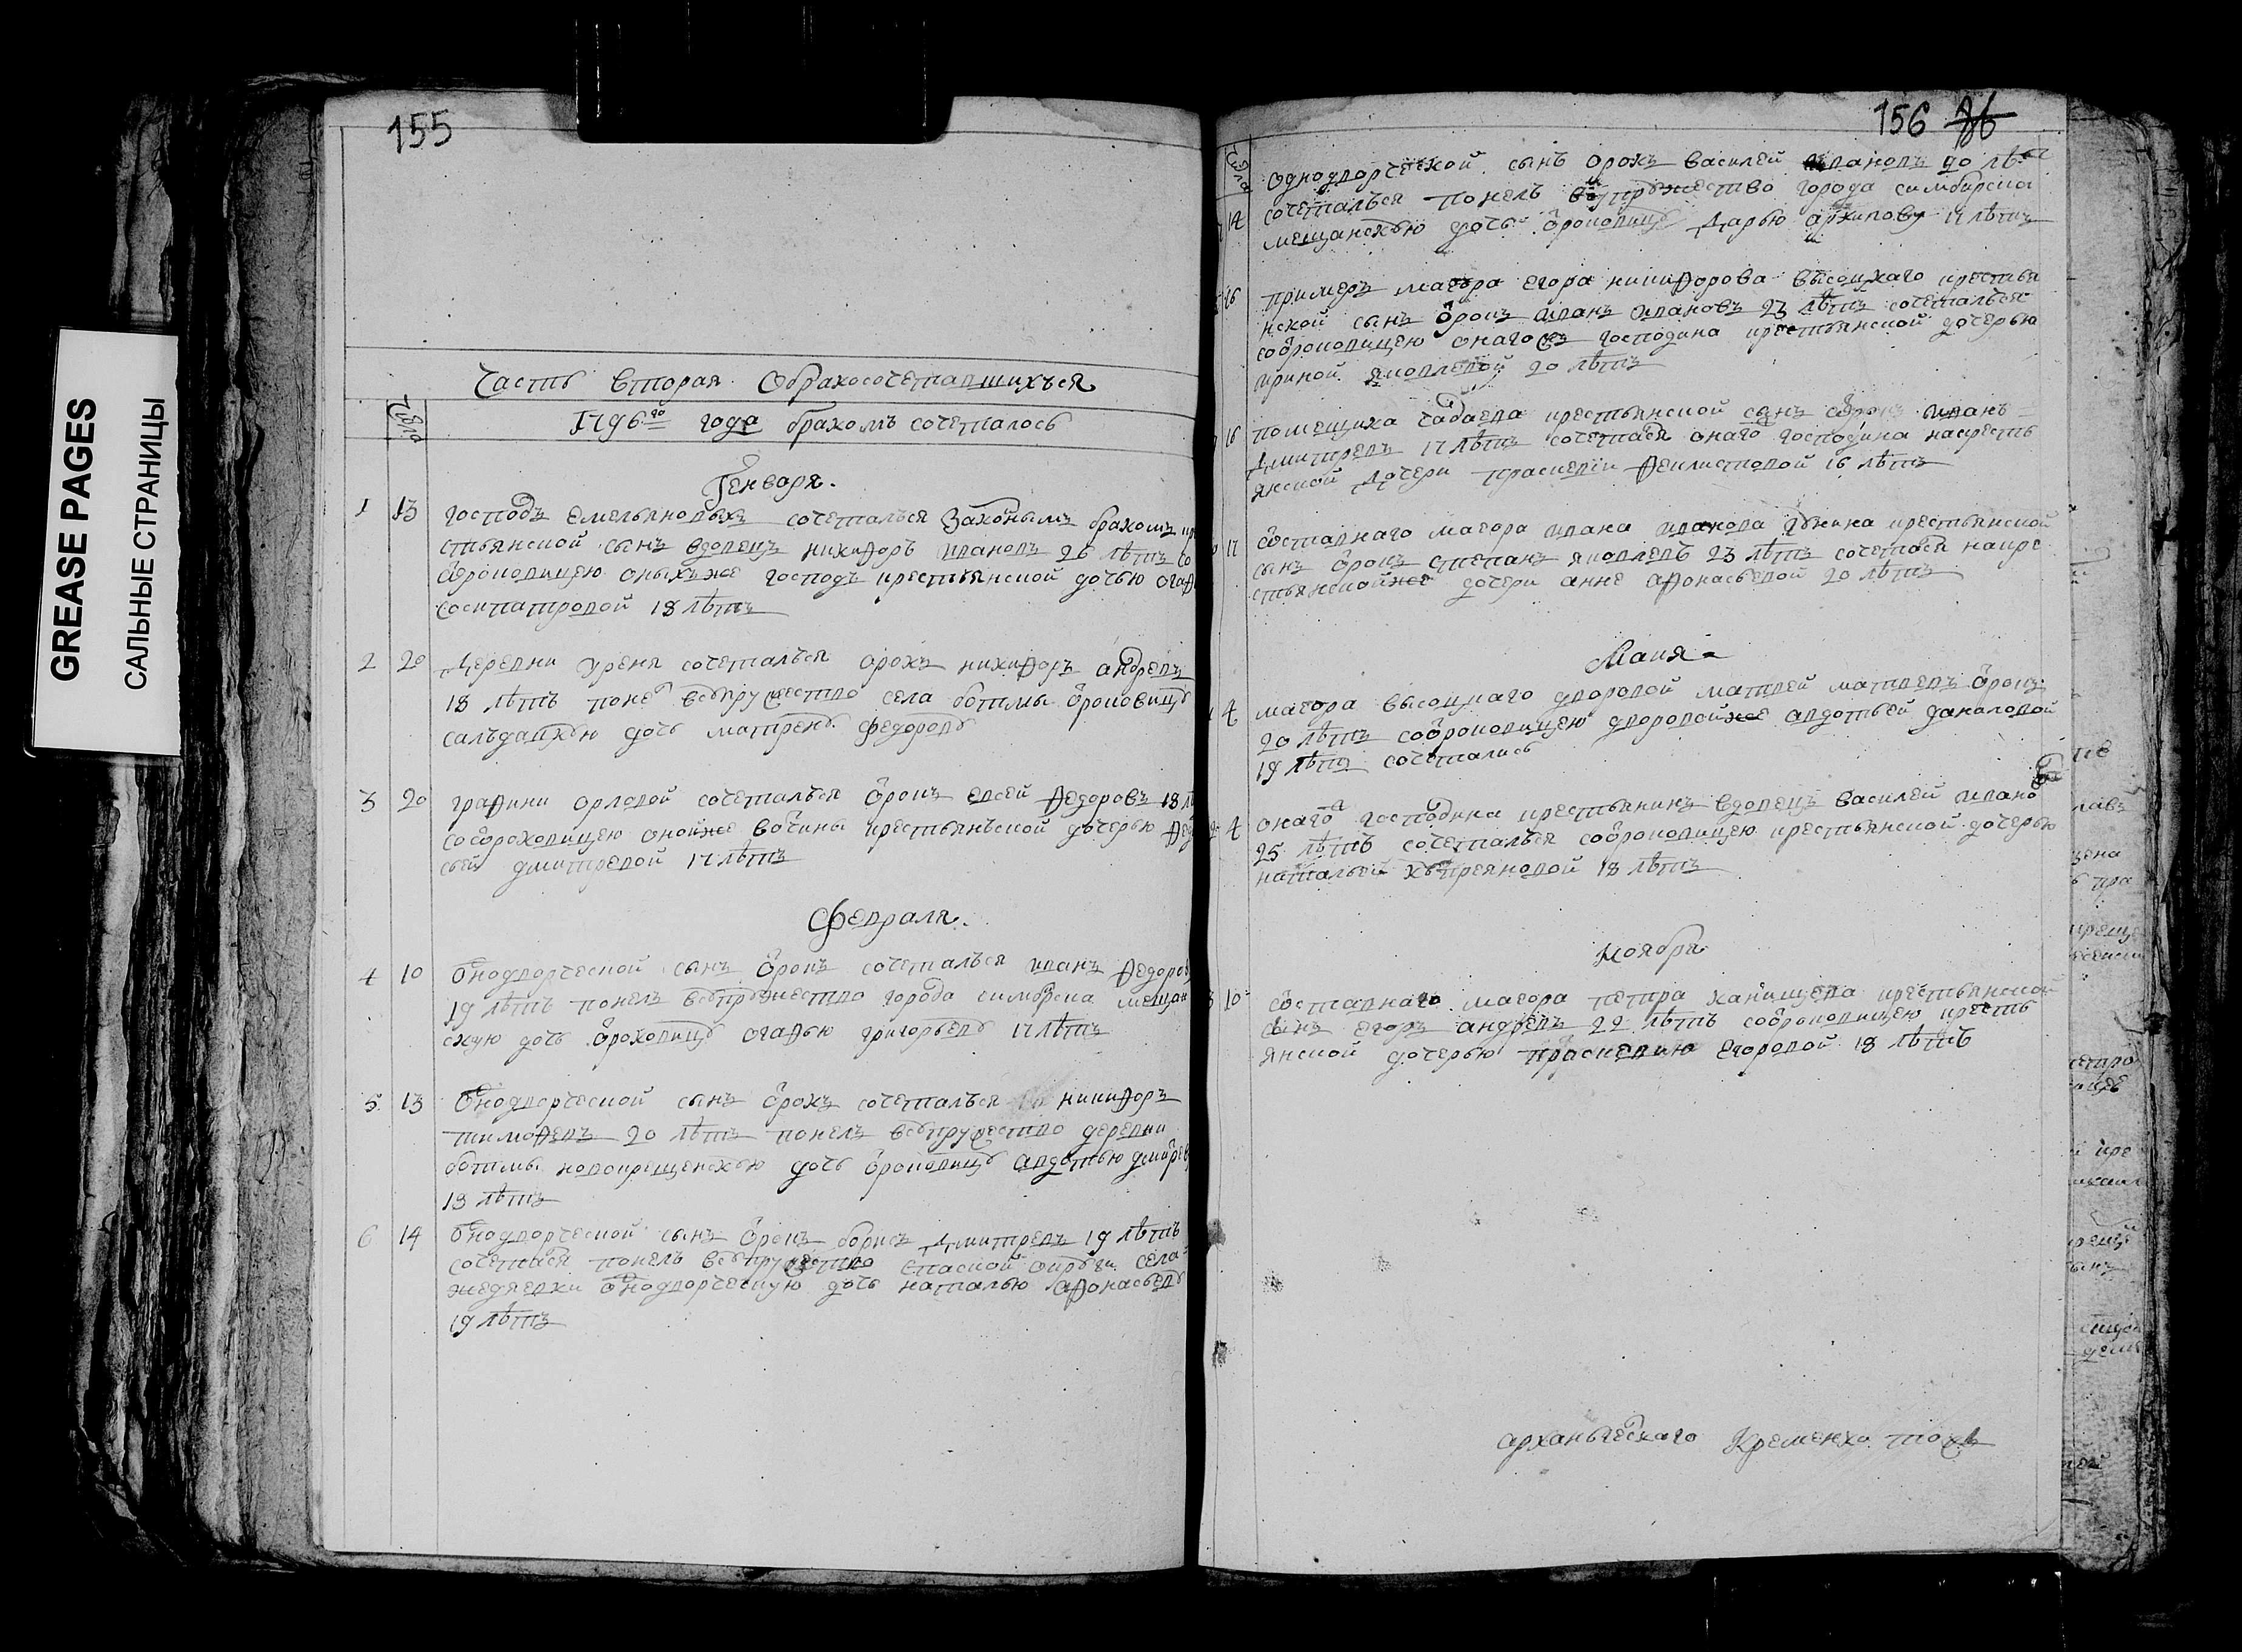 GREASE PAGES
САЛЬНЫЕ СТРАНИЦЫ
155
Часть вторая Обракосочетавшихъся
Число
1796го года бракомъ сочеталось
Генваря.
1 13 господъ Емельяновыхъ сочеталъся законымъ бракомъ кре
стьянской сынъ вдовецъ никифоръ ивановъ 26 лѣтъ со
отроковицею оныхъже господъ крестьянской дочью ога
сосипатровой 18 лѣтъ
2 20 Деревни Урена сочеталъся отрокъ никифоръ андреевъ
18 лѣтъ понелъ всѹпружество села ботмы отроковицѹ
салъдацкѹю дочь матренѹ федоровѹ
3 20 графини орловой сочеталъся отрокъ евсей федоровъ 18 лѣ
соотроковицею онойже вочины крестьянъской дочерью
сьей дмитревой 17 лѣтъ
Февраля.
4 10 однодворческой сынъ отрокъ сочеталъся иванъ федоровъ
19 лѣтъ понелъ всѹпрѹжество города симбирска мещан
скую дочь отроковицѹ огафью григорьевѹ 17 лѣтъ
5 13 однодворческой сынъ отрокъ сочеталъся никифоръ
тимофеевъ 20 лѣтъ понелъ всѹпружество деревни
ботмы новокрещенскѹю дочь отроковицѹ авдотью дмитрев
18 лѣтъ
6 14 однодворческой сынъ отрокъ борисъ Дмитревъ 19 лѣтъ
сочетался понелъ всѹпружество спаской округи села
однодворческую дочь наталью афонасьевѹ
19 лѣтъ
156 86
Число
однодворческой сынъ отрокъ василей ивановъ 20 лѣтъ
14 сочеталъся понелъ всѹпрѹжество города симбирска
мещанскѹю дочь отроковицѹ Дарью архиповѹ 17 лѣтъ
16 примеръ маеора егора никифорова высоцкаго крестья
нской сынъ отрокъ иванъ ивановъ 23 лѣтъ сочеталъся
соотроковицею онагожъ господина крестьянской дочерью
ириной яковлевой 20 лѣтъ
16 помещика чадаева крестьянской сынъ отрокъ иванъ
Дмитревъ 17 лѣтъ сочетался онаго господина накресть
янской Дочери праскевіи феклистовой 16 лѣтъ
17 отставнаго маеора ивана иванова крестьянской
сынъ отрокъ степанъ яковлевъ 23 лѣтъ сочетался накре
стьянскойже дочери анне афонасьевой 20 лѣтъ
Маия
4 маеора высоцкаго дворовой матвей матвеевъ отрокъ
20 лѣтъ соотроковицею дворовойже авдотьей даниловой
19 лѣтъ сочеталисъ
4 онаго господина крестьянинъ вдовецъ василей ивано
25 лѣтъ сочеталъся соотроковицею крестьянской дочерью
натальей кѹпреяновой 18 лѣтъ
ноября
10 отставнаго маеора петра ханищева крестьянской
сынъ егоръ андреевъ 22 лѣтъ соотроковицею кресть
янской дочерью праскевию егоровой 18 лѣтъ